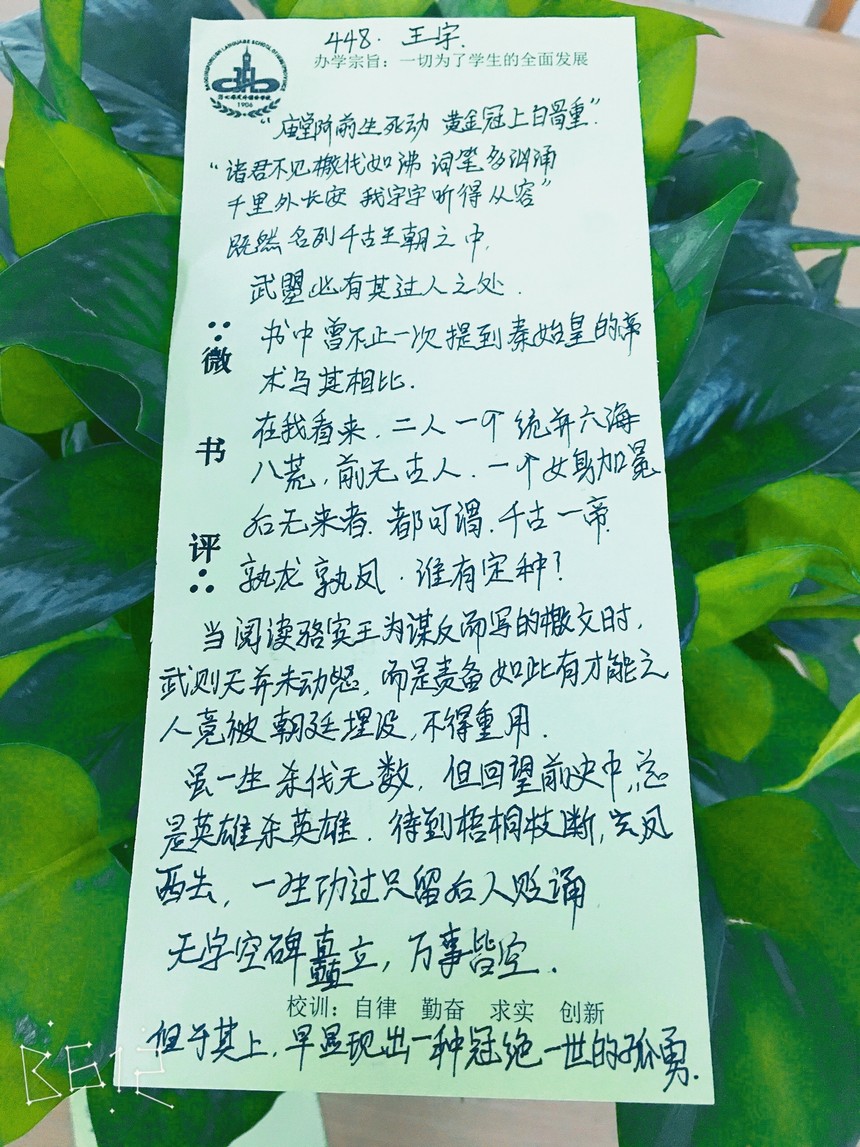 448. 王宇.
办学宗旨：一切为了学生的全面发展
1906
“庙堂阶前生死动 黄金冠上白骨重”.
“诸君不见檄伐如沸 词笔多讽诵
千里外长安 我字字听得从容”
既然名列千古王朝之中,
武曌必有其过人之处.
书中曾不止一次提到秦始皇的帝
术与其相比.
在我看来, 二人一个统并六海
八荒, 前无古人. 一个女身加冕
后无来者. 都可谓, 千古一帝.
孰龙孰凤. 谁有定种?
当阅读骆宾王为谋反而写的檄文时,
武则天并未动怒, 而是责备如此有才能之
人竟被朝廷埋没, 不得重用.
虽一生杀伐无数, 但回望前史中, 总
是英雄杀英雄. 待到梧桐枝断, 鸾凤
西去, 一生功过只留后人贬诵
无字空碑矗立, 万事皆空.
但于其上, 早显现出一种冠绝一世的孤勇.
微书评
校训：自律 勤奋 求实 创新
B612